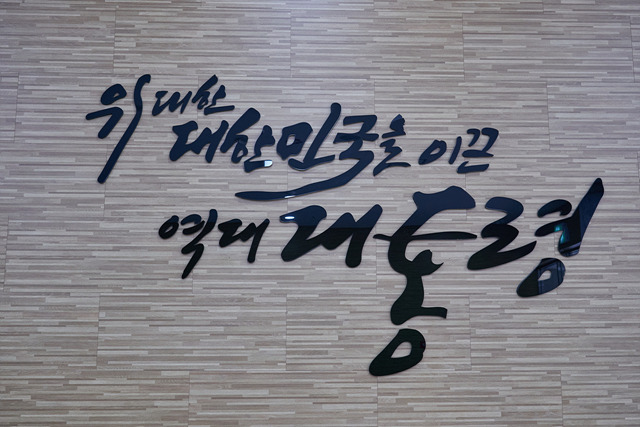 위대한
대한민국을 이끈
역대 대통령